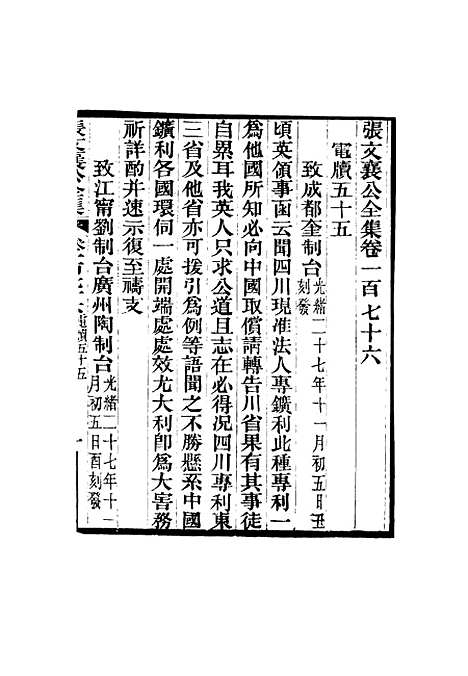 張文襄公全集卷一百七十六
電牘五十五
致成都奎制台光緒二十七年十一月初五日丑刻發
頃英領事函云聞四川現准法人專鑛利此種專利一
為他國所知必向中國取償請轉告川省果有其事徒
自累耳我英人只求公道且志在必得況四川專利東
三省及他省亦可援引為例等語聞之不勝懸系中國
鑛利各國環伺一處開端處處效尤大利卽為大害務
祈詳酌并速示復至禱支
致江甯劉制台廣州陶制台光緒二十七年十一月初五日酉刻發
張文襄公全集 卷一百七十六 電牘五十五 一